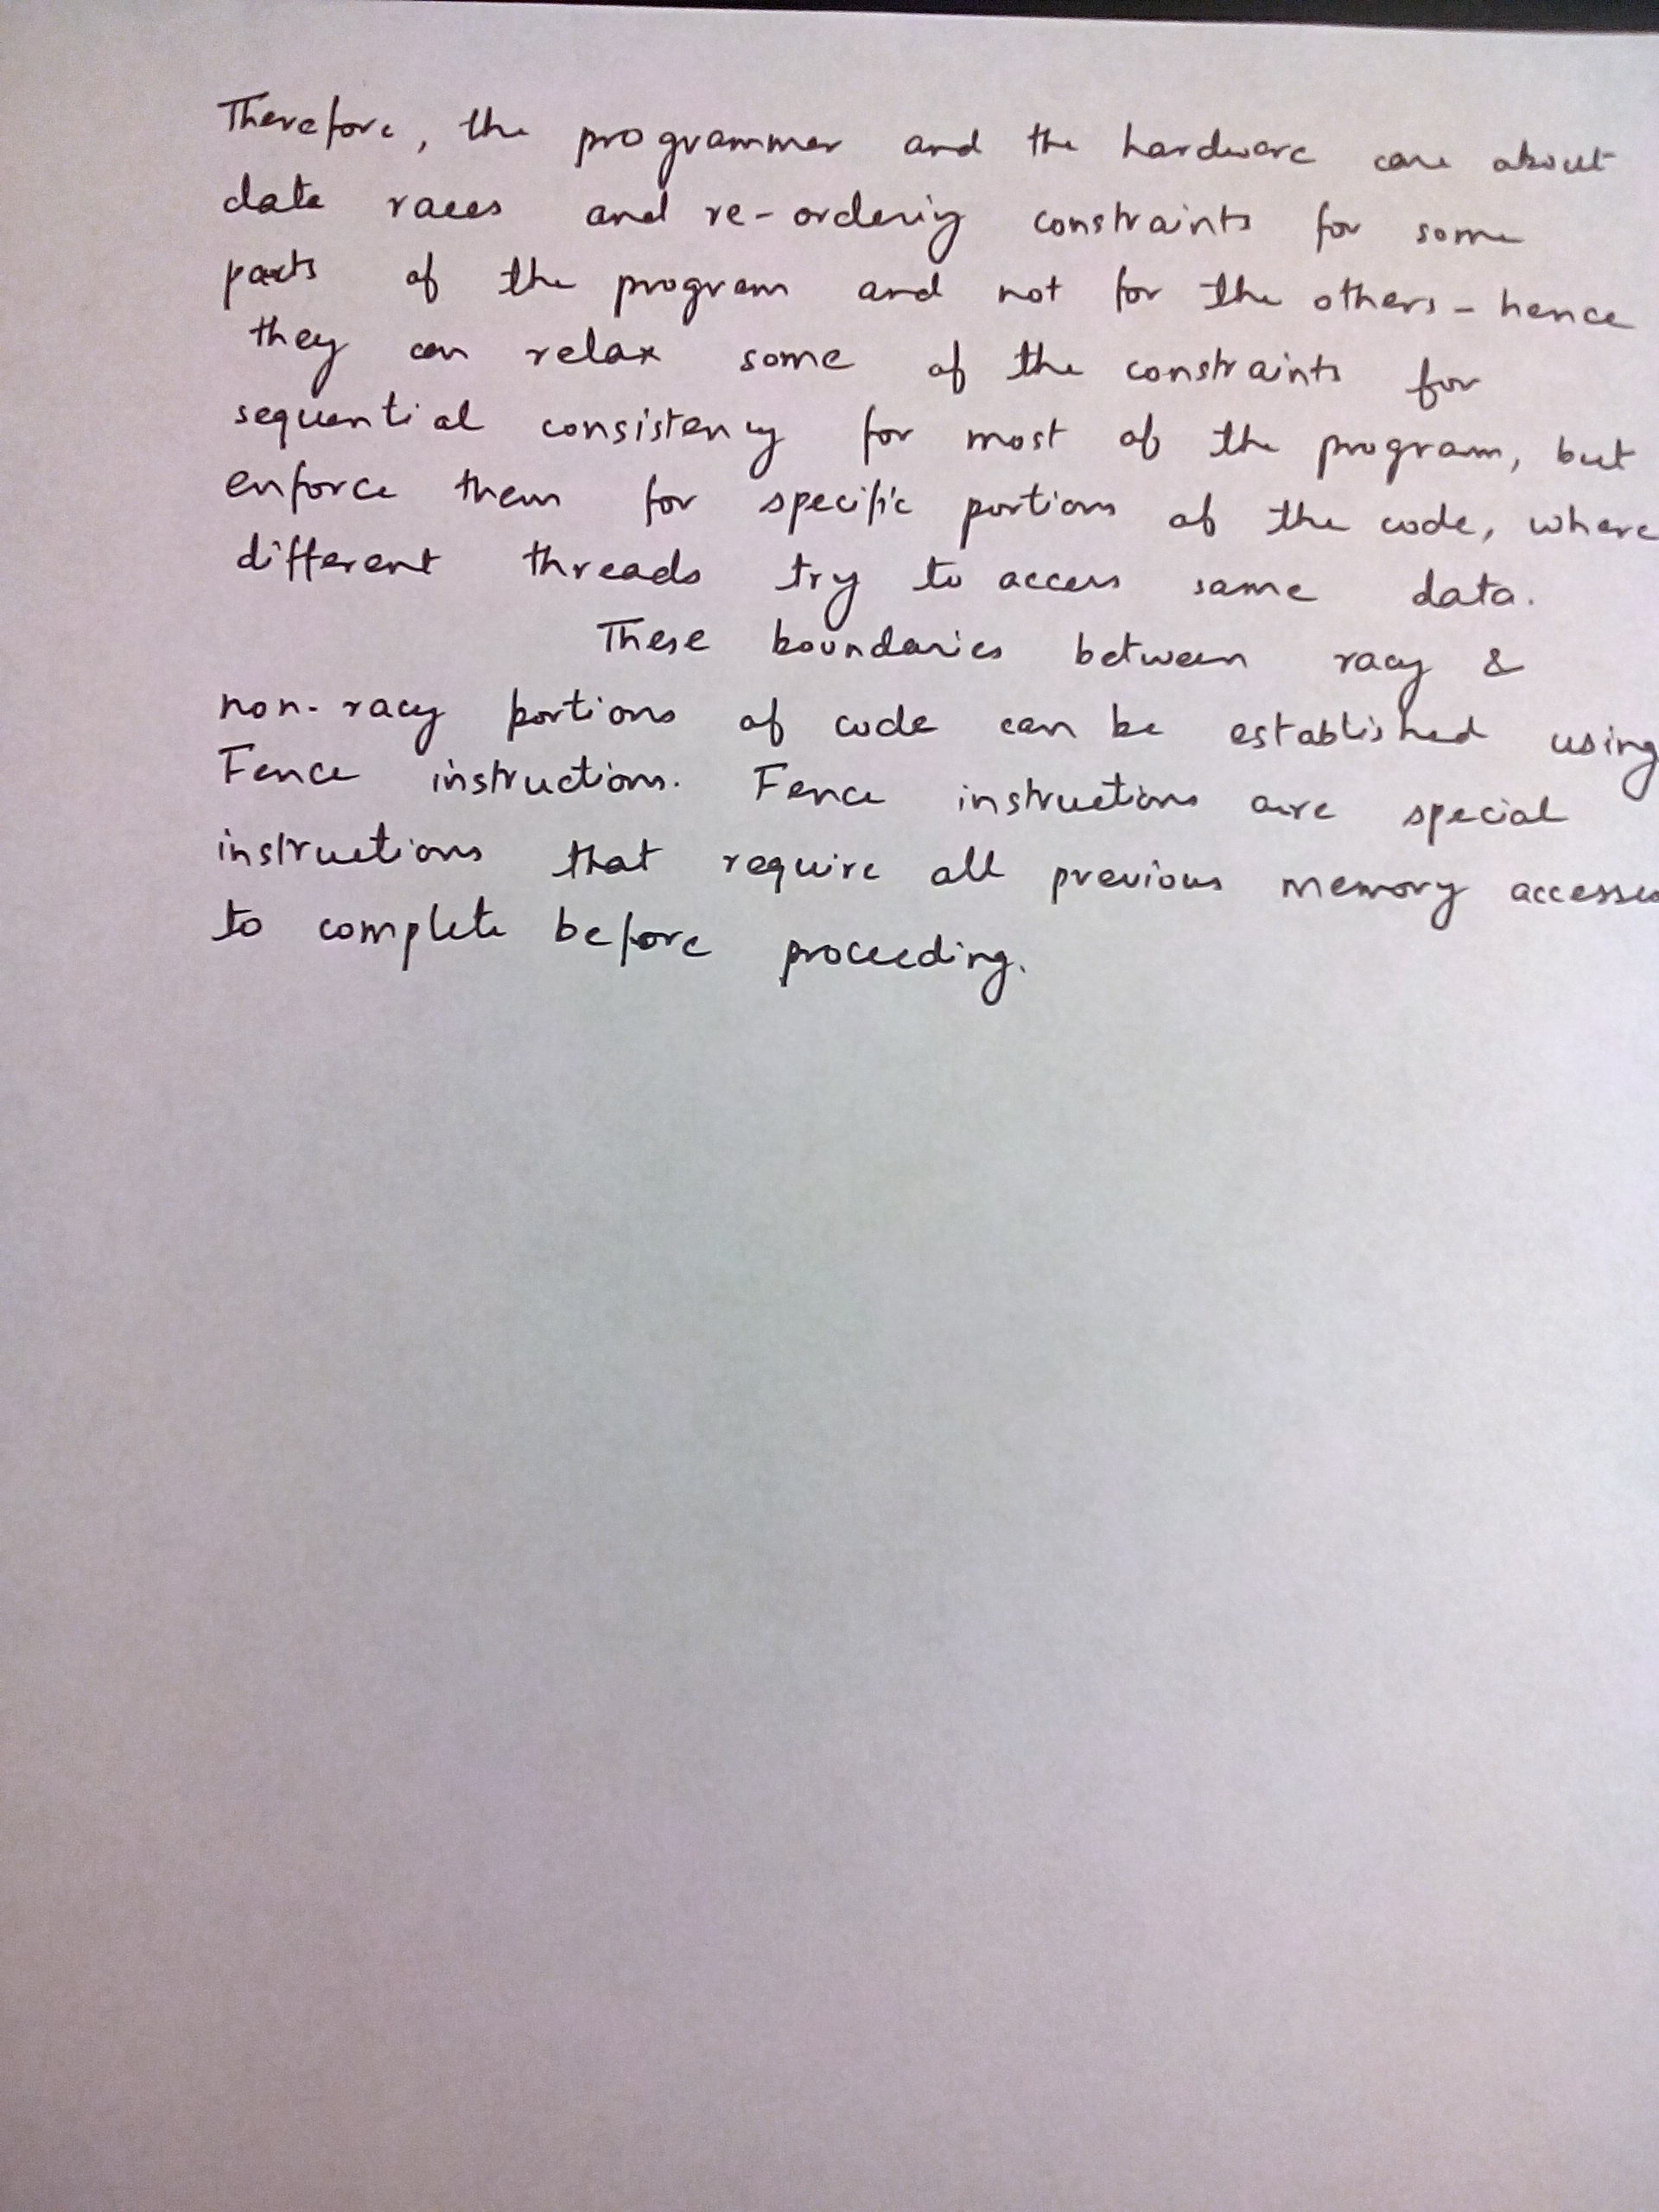 Therefore, the programmer and the hardware care about
data races and re-ordering constraints for some
parts of the program and not for the others - hence
they can relax some of the constraints for
sequential consistency for most of the program, but
enforce them for specific portions of the code, where
different threads try to access same data.
These boundaries between racy &
non-racy portions of code can be established using
Fence instructions. Fence instructions are special
instructions that require all previous memory accesses
to complete before proceeding.